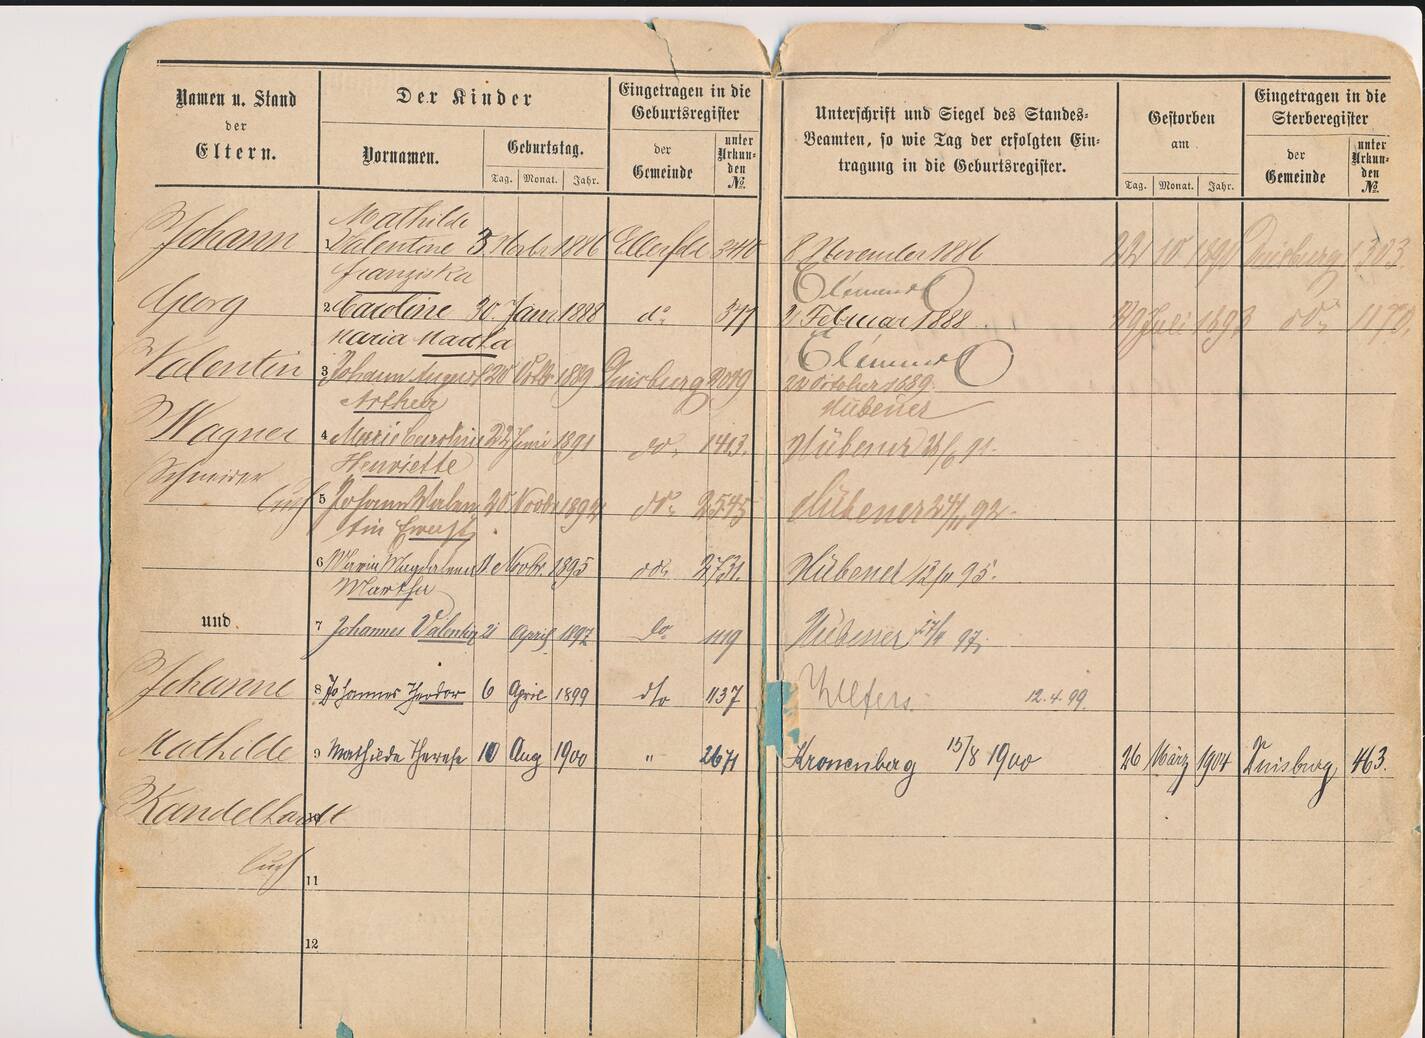 Namen u. Stand
der
Eltern.
Der Kinder
Vornamen.
Geburtstag.
Tag. Monat. Jahr.
Eingetragen in die
Geburtsregister
der
Gemeinde
unter
Urkun-
den
№.
Unterschrift und Siegel des Standes-
Beamten, so wie Tag der erfolgten Ein-
tragung in die Geburtsregister.
Gestorben
am
Tag. Monat. Jahr.
Eingetragen in die
Sterberegister
der
Gemeinde
unter
Urkun-
den
№.
Johann
Georg
Valentin
Wagner
Schreiner
und
Johanne
Mathilde
Kandelhardt
Mathilde
Valentine 3. Novbr 1886 8 November 1886 22 10 1891 Duisburg 1303.
Franziska
2 Caroline 30. Janr 1888 do 377 2 Februar 1888 19 Juli 1893 do 1170.
Maria
3 Johann August 20 Octbr 1889 Duisburg 2079 22 October 1889.
Arthur Hübener
4 Marie Caroline 22 Juni 1891 do 1413. Hübener
Henriette
5 Johann Valen 20 Novbr 1892 do 2545 Hübener 24/11 92.
tin Ernst
6 Maria Magdalena Novbr. 1895 do 2731. Hübener 12/11 95.
Martha
7 Johannes Valentin 21 April 1897 do 1119 Hübener 97.
8 Johannes Theodor 6 April 1899 dto 1137 12.4.99.
9 Mathilde Therese 10 Aug 1900 " 2671 Kronenberg 15/8 1900 26 März 1904 Duisburg 463.
10
11
12